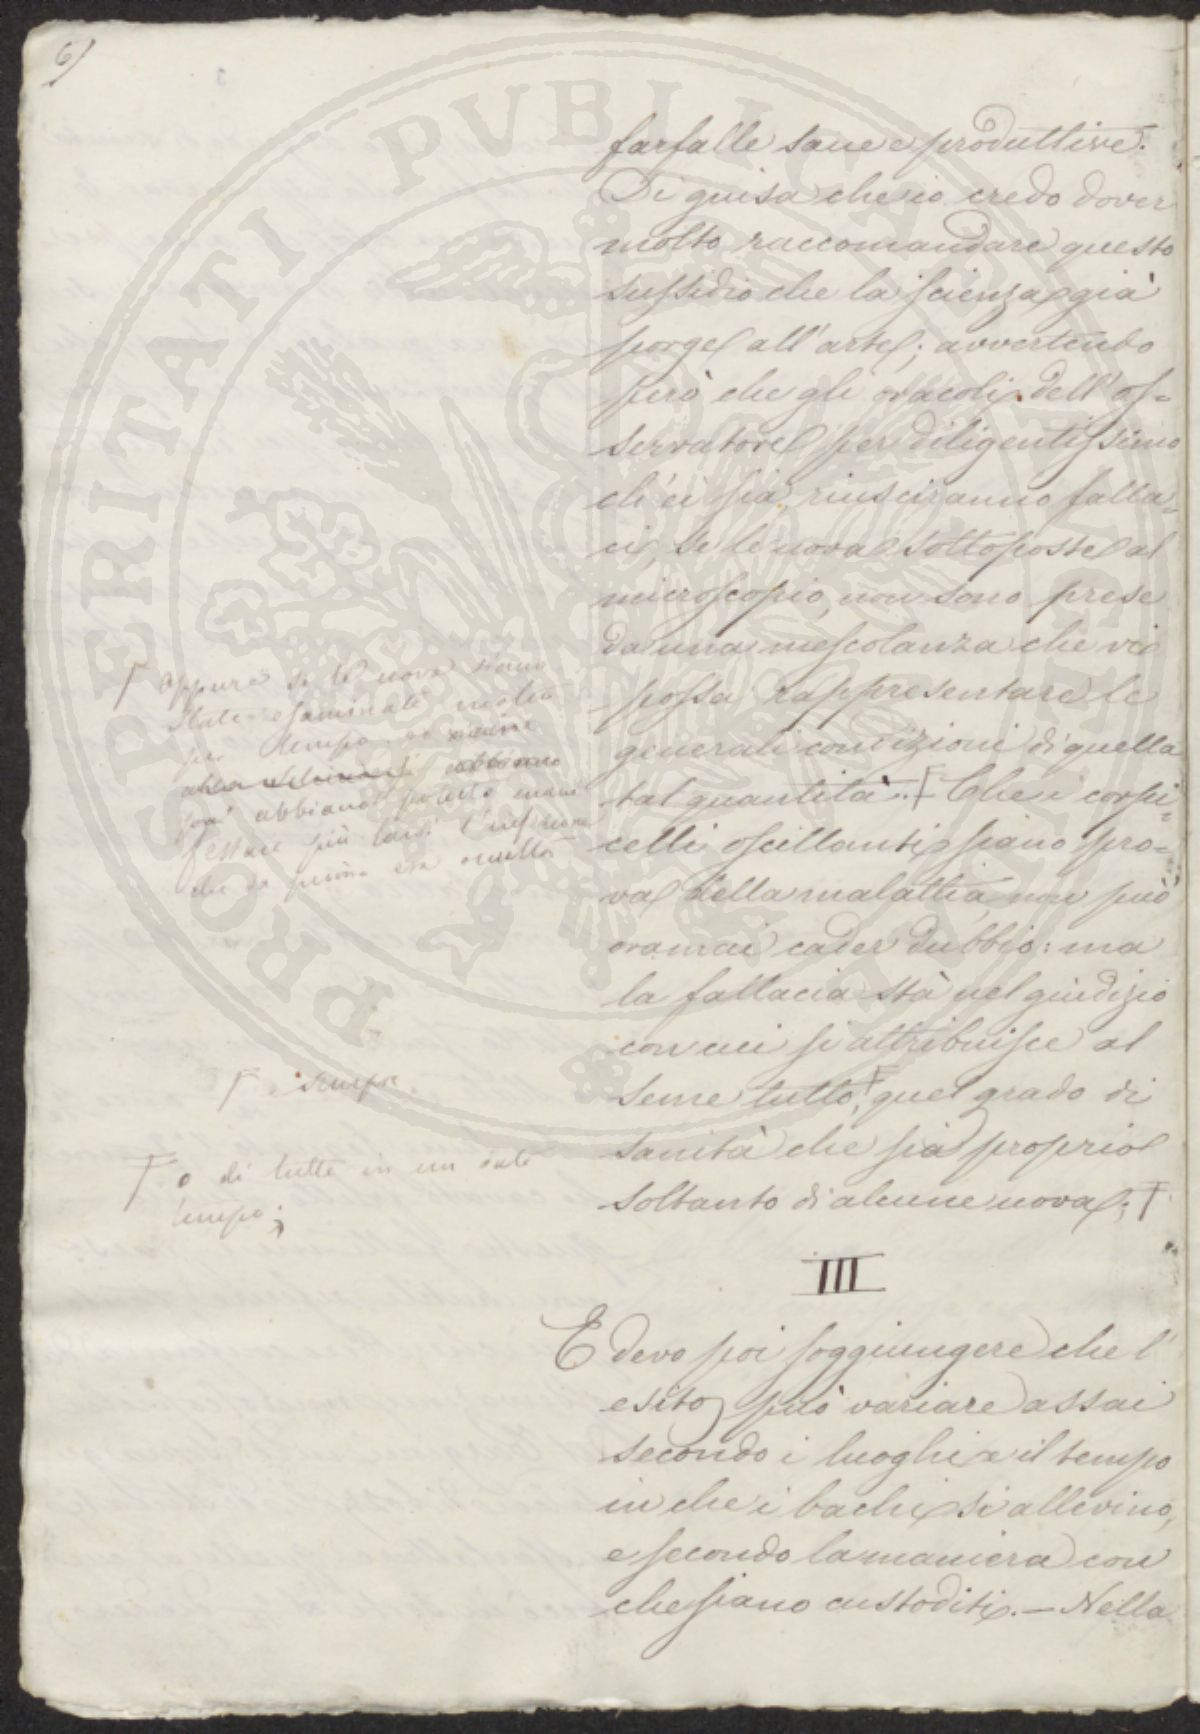 6)
farfalle sane e produttive.
Di guisa che io credo dover
molto raccomandare questo
sussidio che la scienza già
porge all'arte; avvertendo
però che gli oracoli dell'os-
servatore per diligentissimo
ch'ei sia, riusciranno falla-
ci, se le uova sottoposte al
microscopio, non sono prese
da una mescolanza che vi
possa rappresentare le
generali condizioni di quella
tal quantità. Γ Che i corpi-
celli oscillanti siano pro-
va della malattia, non può
oramai cader dubbio: ma
la fallacia stà nel giudizio
con cui si attribuisce al
seme tutto, Γ quel grado di
sanità che sia proprio
soltanto di alcune uova; Γ
Γ oppure se le uova siano
state esaminate molto
per tempo
poi abbiano potuto mani
festare più tardi l'infezione
che da prima era occulta
Γ e sempre
Γ o di tutte in un dato
tempo;
III
E devo poi soggiungere che l'
esito può variare assai
secondo i luoghi e il tempo
in che i bachi si allevino,
e secondo la maniera con
che siano custoditi. — Nella
PROSPERITATI PVBLICAE